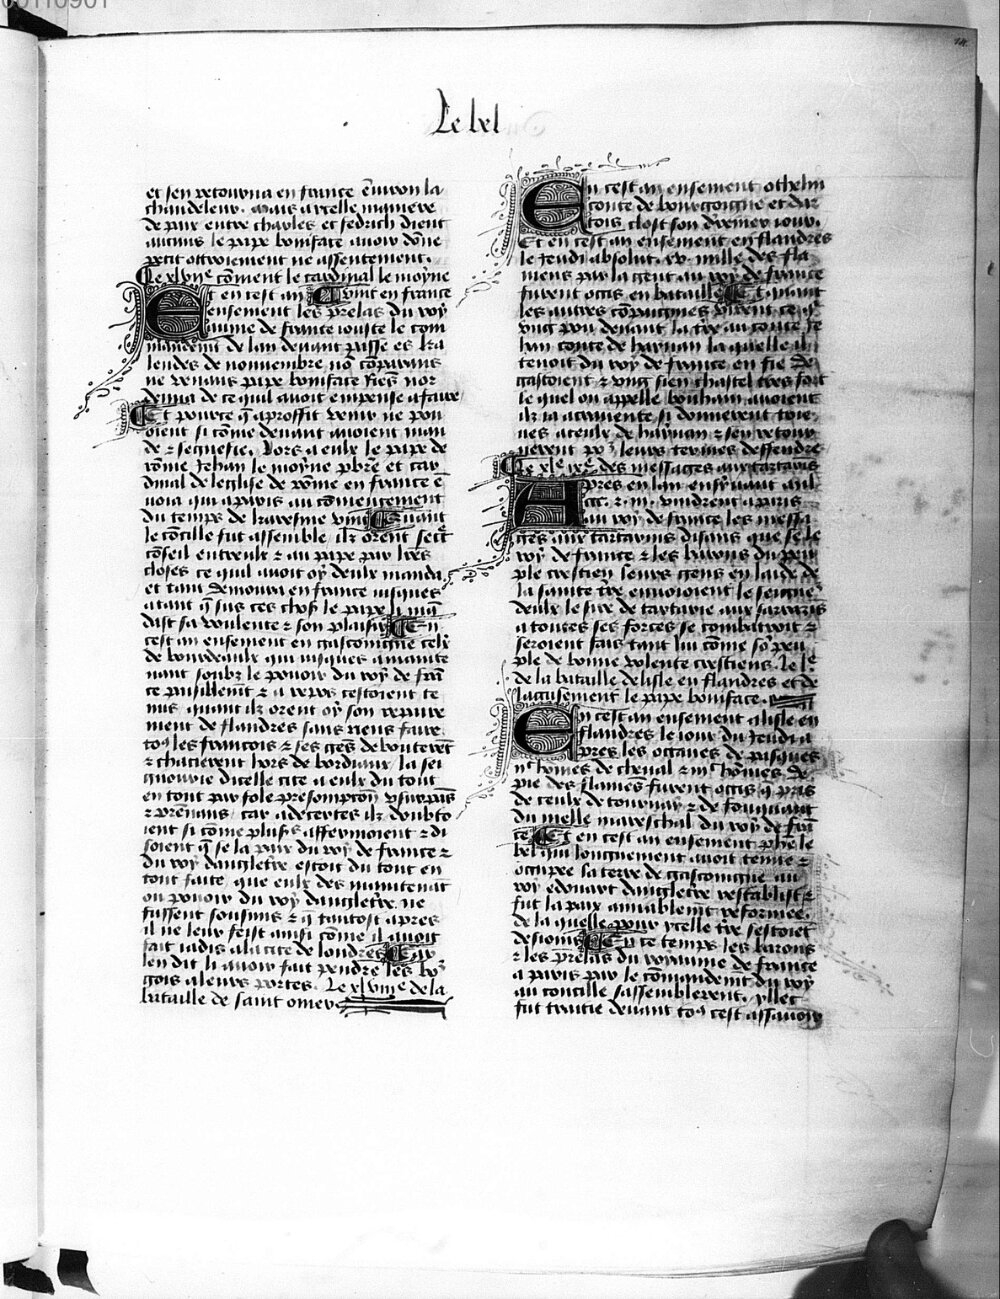 Le bel
et sen retourna en france enuiron la
chandeleur. Mais a icelle maniere
de paix entre charles et fedrich dient
aucuns le pape boniface auoir done
petit ottroiement ne assentement.
Le xlviie coment le cardinal le moyne
Et en cest an vint en france
ensement les prelas du roy
aume de france iouste le com
mandemt de lan deuant passe es ka
lendes de nouuembre no comparans
ne venans pape boniface fors nor
dena de ce quil auoit en pense a faire
Et pource q a proffit venir ne pou
oient si come deuant auoient man
de & segnefie. Lors a eulx le pape de
rome Jehan le moyne pbre et car
dinal de leglise de rome en france en
uoia qui a paris au comencement
du temps de karesme vint Quant
le concille fut assemble ilz orent secr
conseil entreulx & au pape par lres
closes ce quil auoit oy deulx manda
et tant demoura en france iusques
atant q sus ces chos le pape li ma
dast sa voulente & son plaisir En
cest an ensement en gascoingne celx
de bourdeaulx qui iusques a mainte
nant soubz le pouoir du roy de fran
ce paisiblemt & a repos cestoient te
nus quant ilz orent oy son repaire
ment de flandres sans riens faire
tos les francois & ses ges debouterent
& chacierent hors de bordiaux la sei
gnourie dicelle cite a eulx du tout
en tout par fole presompton vsurpans
& prenans, car adecertes ilz doubto
ient si come plusrs affermoient & di
soient q se la paix du roy de france &
du roy dangletre estoit du tout en
tout faite, que eulx des maintenat
ou pouoir du roy dangletre ne
fussent sousmis & q tantost apres
il ne leur feist ainsi come il auoit
fait iadis a la cite de londres Car
len dit li auoir fait pendre les bor
gois a leurs portes. Le xlviiie de la
bataille de saint omer
En cest an ensement othelin
conte de bourgoingne et dar
tois clost son derrenier iour.
Et en cest an ensement en flandres
le Jeudi absolut xv. mille des fla
mens par la gent au roy de france
furent occis en bataille Et quant
les autres compaignes virent ce q
vng pou deuant la tre au conte Je
han conte de haynau la quelle il
tenoit du roy de france en fie de
gastoient & vng sien chastel tres fort
le quel on appelle bouhain auoient
ilz ia acrauente si donnerent treu
ues a ceulx de haynau & sen retour
nerent por leurs termes deffendre
Le xlixe des messages aux tartarins
Apres en lan ensyuant mil
ccc. & .iii. vindrent a paris
au roy de france les messa
ges aux tartarins disans que se le
roy de france & les barons du peu
ple crestien leurs gens en laide de
la sainte tre enuoioient le seigne
deulx le sire de tartarie aux sarrazins
a toutes ses forces se combatroit &
seroient fais tant lui come son peu
ple de bonne volente crestiens. Le le
de la bataille delisle en flandres et de
lacusement le pape boniface.
En cest an ensement a lisle en
flandres le iour du Jeudi a
pres les octaues de pasques
iic homes de cheual & iiic homes de
pie des flamens furent occis & pris
de ceulx de tournay & de fouquart
du melle mareschal du roy de fran
ce Et en cest an ensement phe le
bel qui longuement auoit tenue &
occupee sa terre de gascoingne au
roy edouart dangletre restablist &
fut la paix amiablemt reformee.
de la quelle pour ycelle tre sestoiet
desioins En ce temps les barons
& les prelas du royaume de france
a paris par le comandemt du roy
au concille sassemblerent. yllec
fut traitie deuant tos cest assauoir